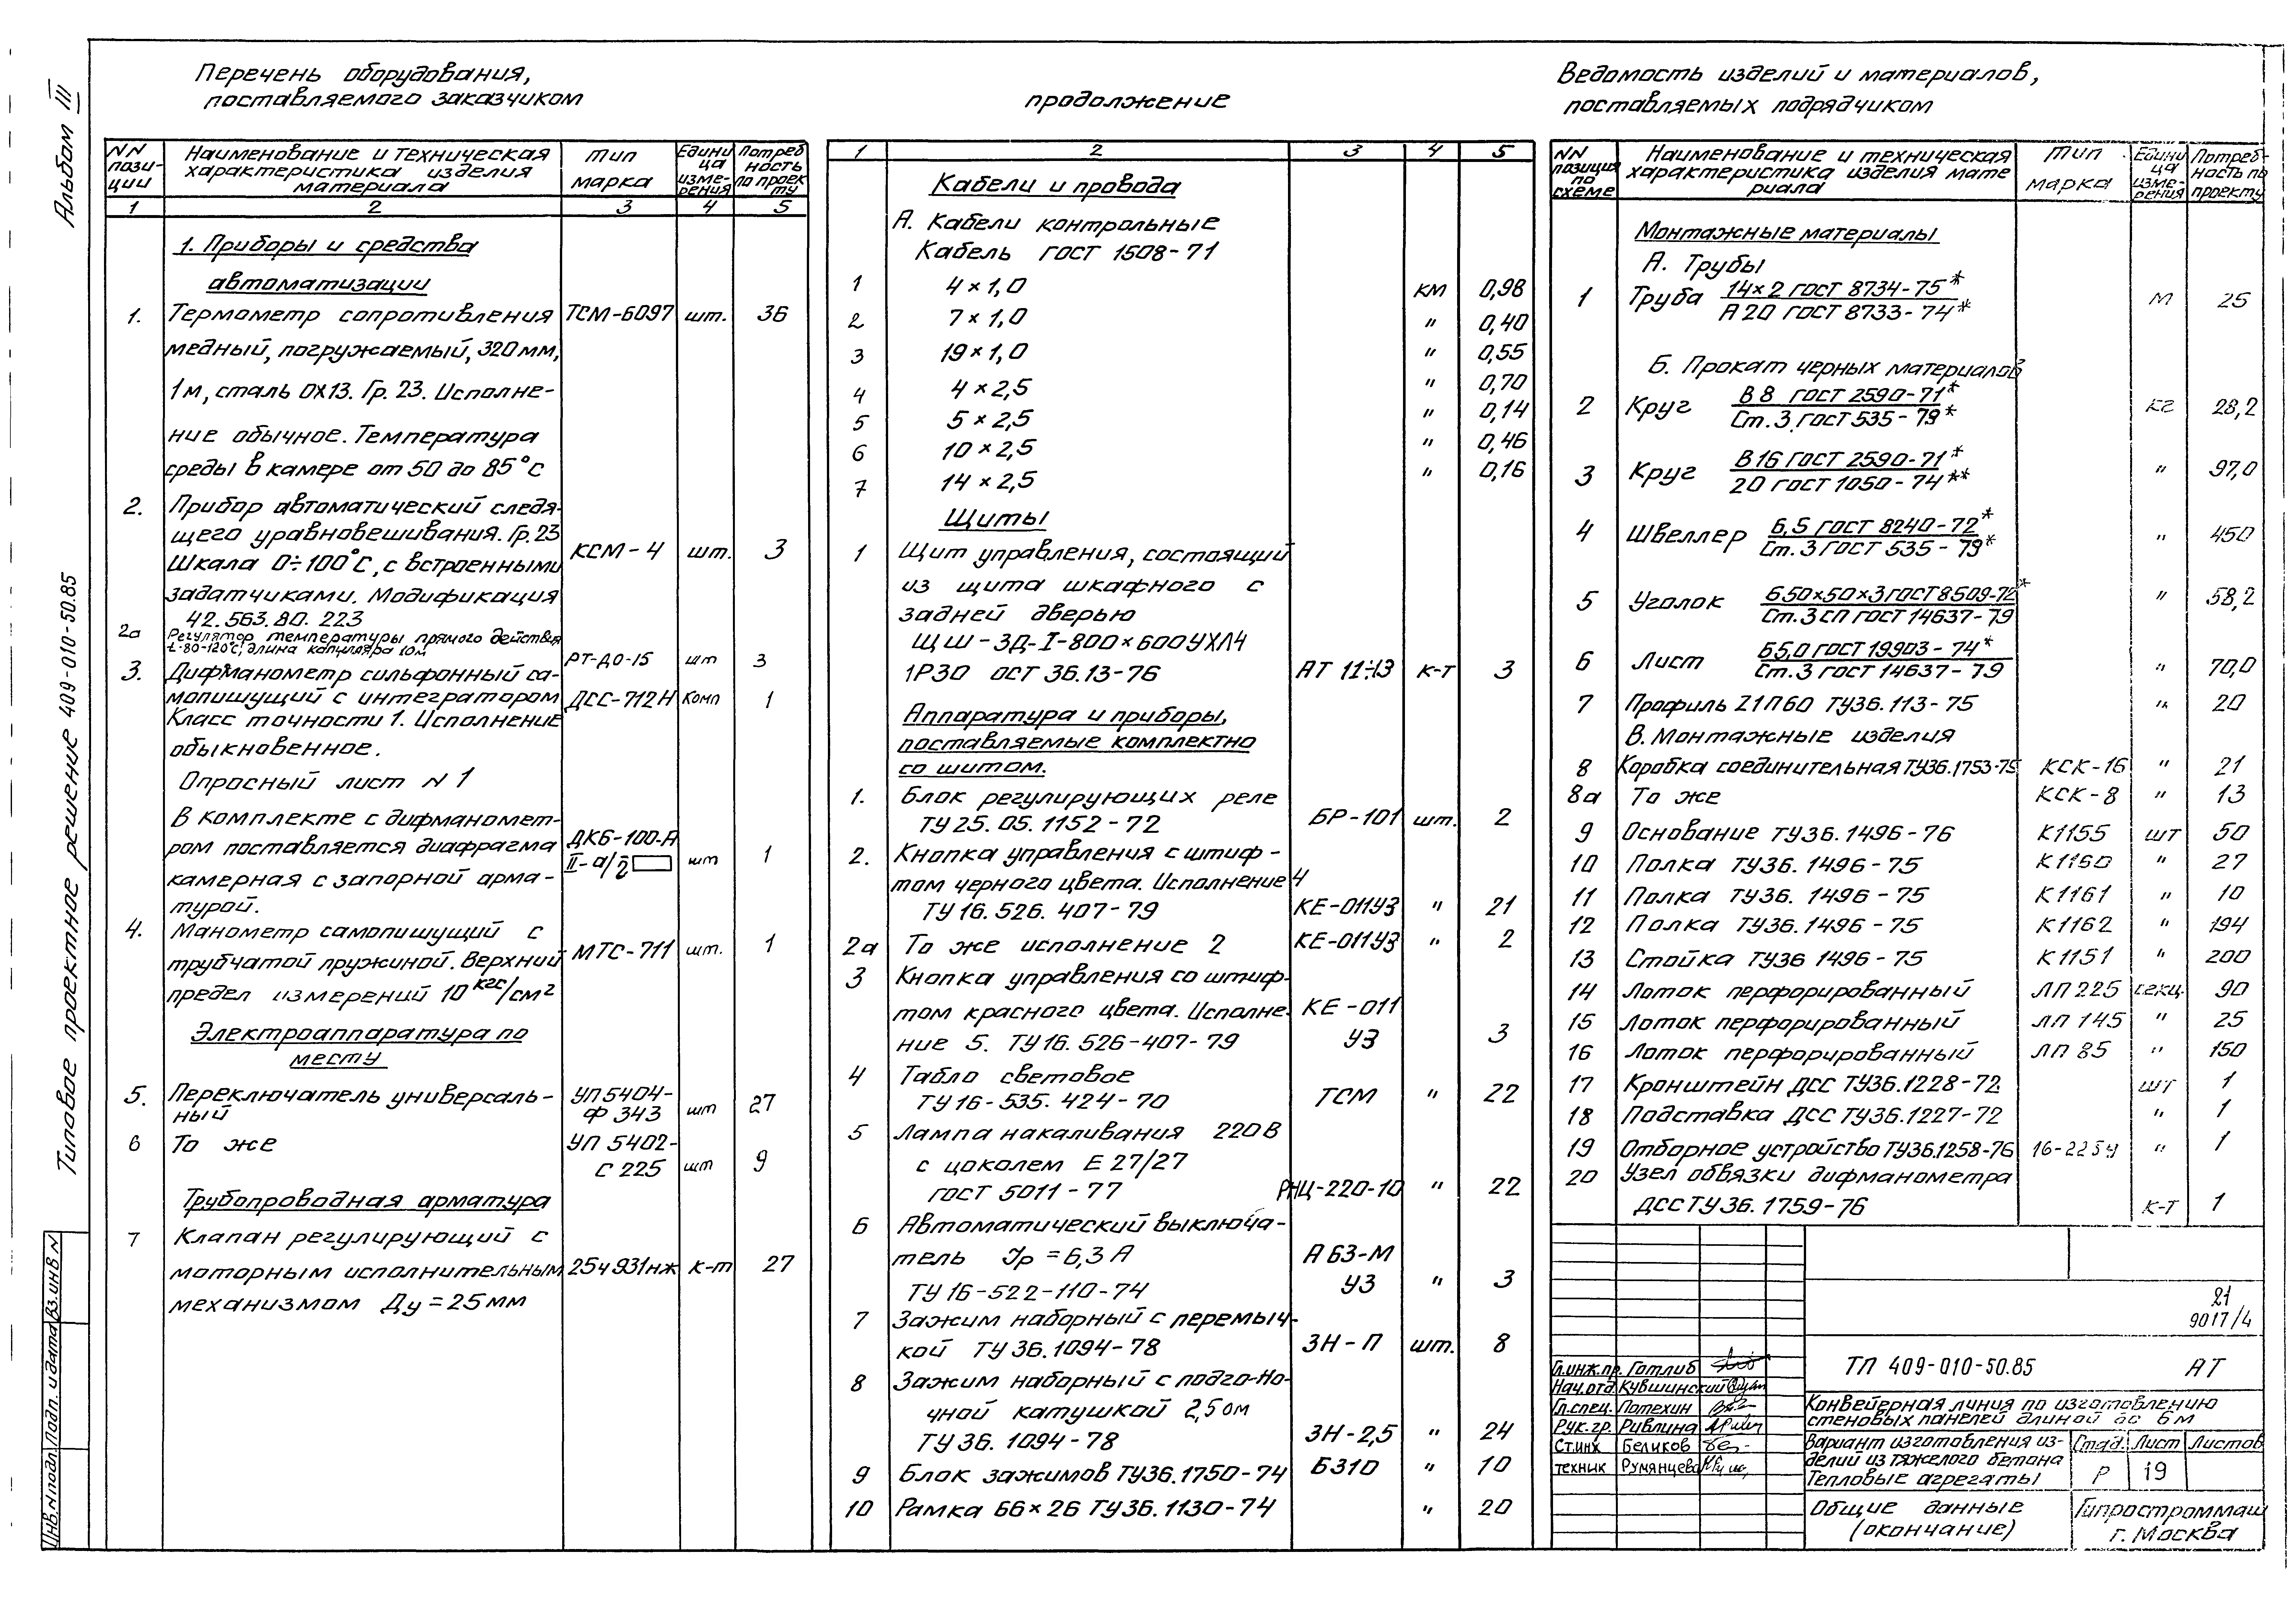 Альбом III
Типовое проектное решение 409-010-50.85
Инв.№подл. Подп. и дата Вз.инв №
Перечень оборудования,
поставляемого заказчиком
NN позиции | Наименование и техническая характеристика изделия материала | Тип марка | Единица измерения | Потребность по проекту
1 2 3 4 5
1. Приборы и средства
автоматизации
1. Термометр сопротивления ТСМ-6097 шт. 36
медный, погружаемый, 320мм,
1м, сталь 0Х13. Гр. 23. Исполне-
ние обычное. Температура
среды в камере от 50 до 85°С
2. Прибор автоматический следя-
щего уравновешивания. Гр. 23
Шкала 0÷100°С, с встроенными КСМ-4 шт. 3
задатчиками. Модификация
42.563.80.223
2а Регулятор температуры прямого действия
t-80-120°С, длина капилляра 10м РТ-ДО-15 шт 3
3. Дифманометр сильфонный са-
мопишущий с интегратором ДСС-712Н Комп 1
Класс точности 1. Исполнение
обыкновенное.
Опросный лист N 1
В комплекте с дифманомет-
ром поставляется диафрагма ДКБ-100-А
камерная с запорной арма- II-а/2 шт 1
турой.
4. Манометр самопишущий с
трубчатой пружиной. Верхний МТС-711 шт. 1
предел измерений 10 кгс/см2
Электроаппаратура по
месту
5. Переключатель универсаль- УП5404-
ный Ф 343 шт 27
6 То же УП 5402-
С 225 шт 9
Трубопроводная арматура
7 Клапан регулирующий с
моторным исполнительным 25ч931нж к-т 27
механизмом Ду = 25мм
продолжение
1 2 3 4 5
Кабели и провода
А. Кабели контрольные
Кабель ГОСТ 1508-71
1 4×1,0 км 0,98
2 7×1,0 " 0,40
3 19×1,0 " 0,55
4 4×2,5 " 0,70
5 5×2,5 " 0,14
6 10×2,5 " 0,46
7 14×2,5 " 0,16
Щиты
1 Щит управления, состоящий
из щита шкафного с
задней дверью
ЩШ-ЗД-I-800×600УХЛ4
1Р30 ОСТ 36.13-76 АТ 11÷13 к-т 3
Аппаратура и приборы,
поставляемые комплектно
со щитом.
1. Блок регулирующих реле
ТУ 25.05.1152-72 БР-101 шт. 2
2. Кнопка управления с штиф-
том черного цвета. Исполнение 4
ТУ 16.526.407-79 КЕ-011У3 " 21
2а То же исполнение 2 КЕ-011У3 " 2
3 Кнопка управления со штиф-
том красного цвета. Исполне- КЕ-011
ние 5. ТУ 16.526-407-79 У3 3
4 Табло световое
ТУ 16-535.424-70 ТСМ " 22
5 Лампа накаливания 220В
с цоколем Е 27/27
ГОСТ 5011-77 РНЦ-220-10 " 22
6 Автоматический выключа-
тель Jр = 6,3 А А 63-М
ТУ 16-522-110-74 У3 " 3
7 Зажим наборный с перемыч-
кой ТУ 36.1094-78 ЗН-П шт. 8
8 Зажим наборный с подго-но-
чной катушкой 2,5 ом
ТУ 36.1094-78 ЗН-2,5 " 24
9 Блок зажимов ТУ36.1750-74 БЗ10 " 10
10 Рамка 66×26 ТУ 36.1130-74 " 20
Ведомость изделий и материалов,
поставляемых подрядчиком
NN позиция по схеме | Наименование и техническая характеристика изделия материала | Тип марка | Единица измерения | Потребность по проекту
Монтажные материалы
А. Трубы
1 Труба 14×2 ГОСТ 8734-75* м 25
А 20 ГОСТ 8733-74*
Б. Прокат черных материалов
2 Круг В 8 ГОСТ 2590-71* кг 28,2
Ст. 3 ГОСТ 535-79*
3 Круг В 16 ГОСТ 2590-71* " 97,0
20 ГОСТ 1050-74**
4 Швеллер 6,5 ГОСТ 8240-72* " 450
Ст. 3 ГОСТ 535-79*
5 Уголок Б50×50×3 ГОСТ 8509-72* " 58,2
Ст. 3 сп ГОСТ 14637-79
6 Лист Б5,0 ГОСТ 19903-74* " 70,0
Ст. 3 ГОСТ 14637-79
7 Профиль Z1П60 ТУ36.113-75 " 20
В. Монтажные изделия
8 Коробка соединительная ТУ36.1753-75 КСК-16 " 21
8а То же КСК-8 " 13
9 Основание ТУ36.1496-76 К1155 шт 50
10 Полка ТУ36.1496-75 К1160 " 27
11 Полка ТУ36.1496-75 К1161 " 10
12 Полка ТУ36.1496-75 К1162 " 194
13 Стойка ТУ36 1496-75 К1151 " 200
14 Лоток перфорированный ЛП 225 секц. 90
15 Лоток перфорированный ЛП 145 " 25
16 Лоток перфорированный ЛП 85 " 150
17 Кронштейн ДСС ТУ36.1228-72 шт 1
18 Подставка ДСС ТУ36.1227-72 " 1
19 Отборное устройство ТУ36.1258-76 16-225У " 1
20 Узел обвязки дифманометра
ДСС ТУ 36.1759-76 к-т 1
21
9017/4
Гл.инж.пр. Готлиб
Нач.отд. Кувшинский
Гл.спец. Потехин
Рук.гр. Ривлина
Ст.инж Беликов
техник Румянцева
ТП 409-010-50.85 АТ
Конвейерная линия по изготовлению
стеновых панелей длиной до 6м
Вариант изготовления из-
делий из тяжелого бетона
Тепловые агрегаты
Стад. Лист Листов
Р 19
Общие данные
(окончание)
Гипростроммаш
г. Москва